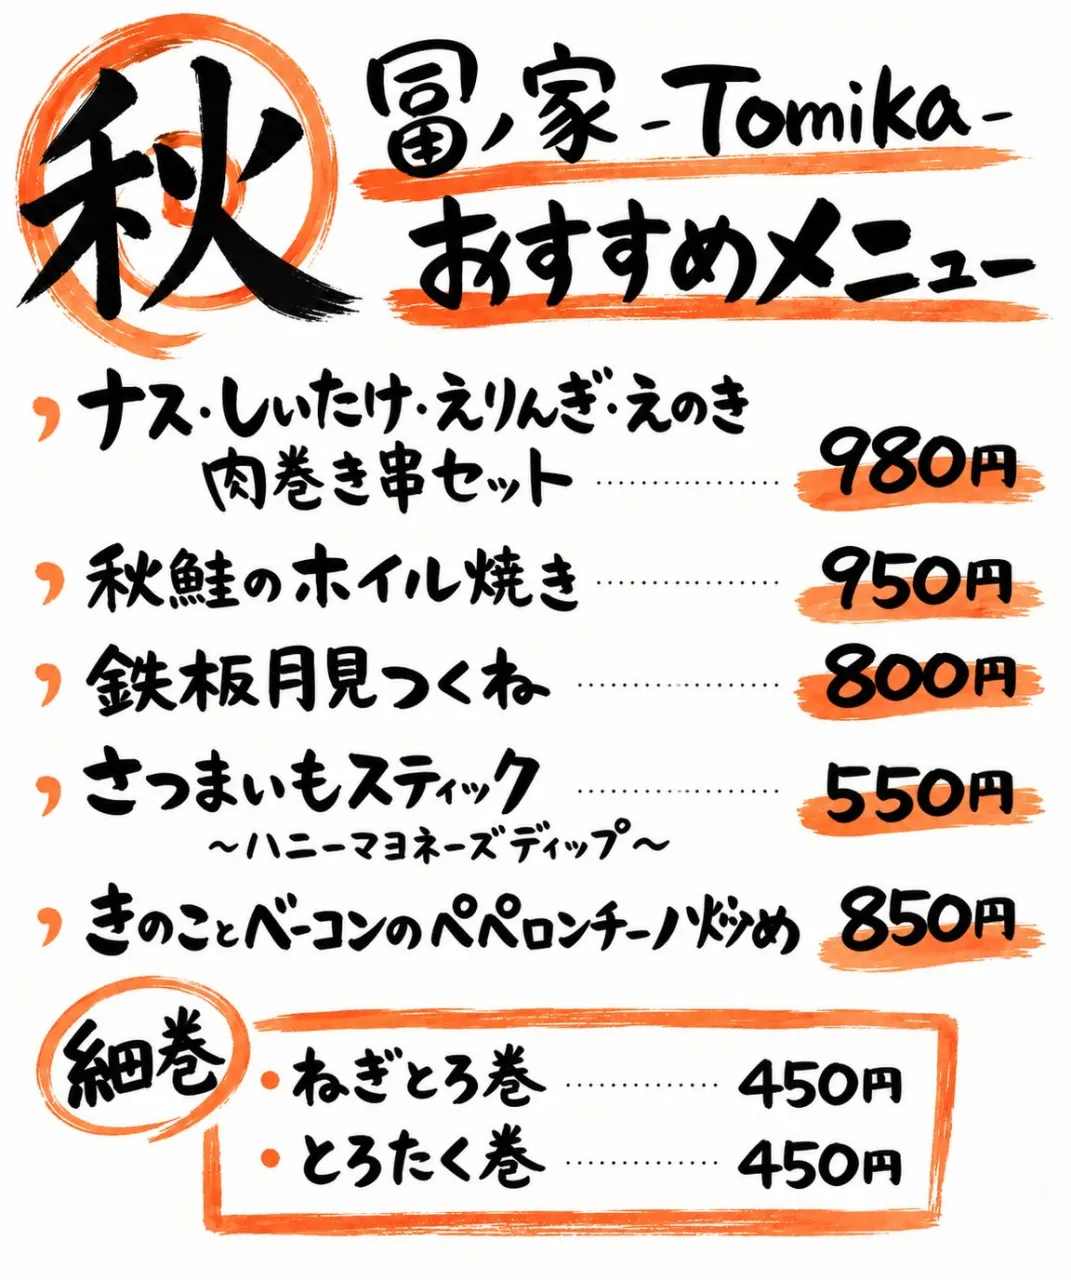 秋
冨ノ家 -Tomika-
おすすめメニュー
ナス・しいたけ・えりんぎ・えのき
肉巻き串セット 980円
秋鮭のホイル焼き 950円
鉄板月見つくね 800円
さつまいもスティック 550円
～ハニーマヨネーズディップ～
きのことベーコンのペペロンチーノ炒め 850円
細巻
・ねぎとろ巻 450円
・とろたく巻 450円